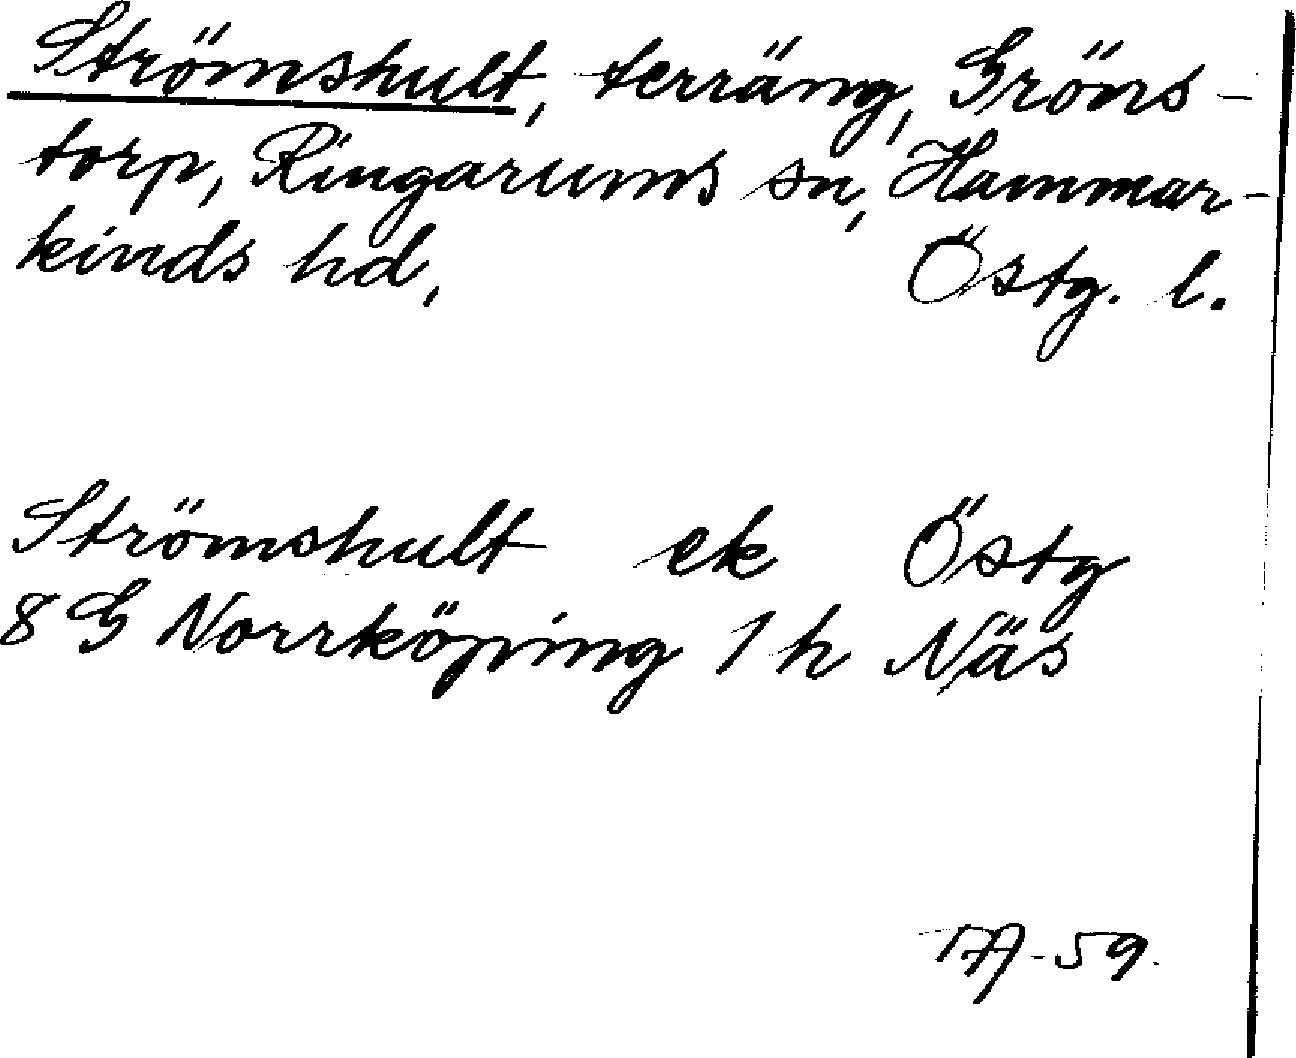 Strömshult, terräng, Gröns-
torp, Ringarums sn, Hammar-
kinds hd, Östg. l.
Strömshult ek Östg
8 G Norrköping 1 h Näs
-59.